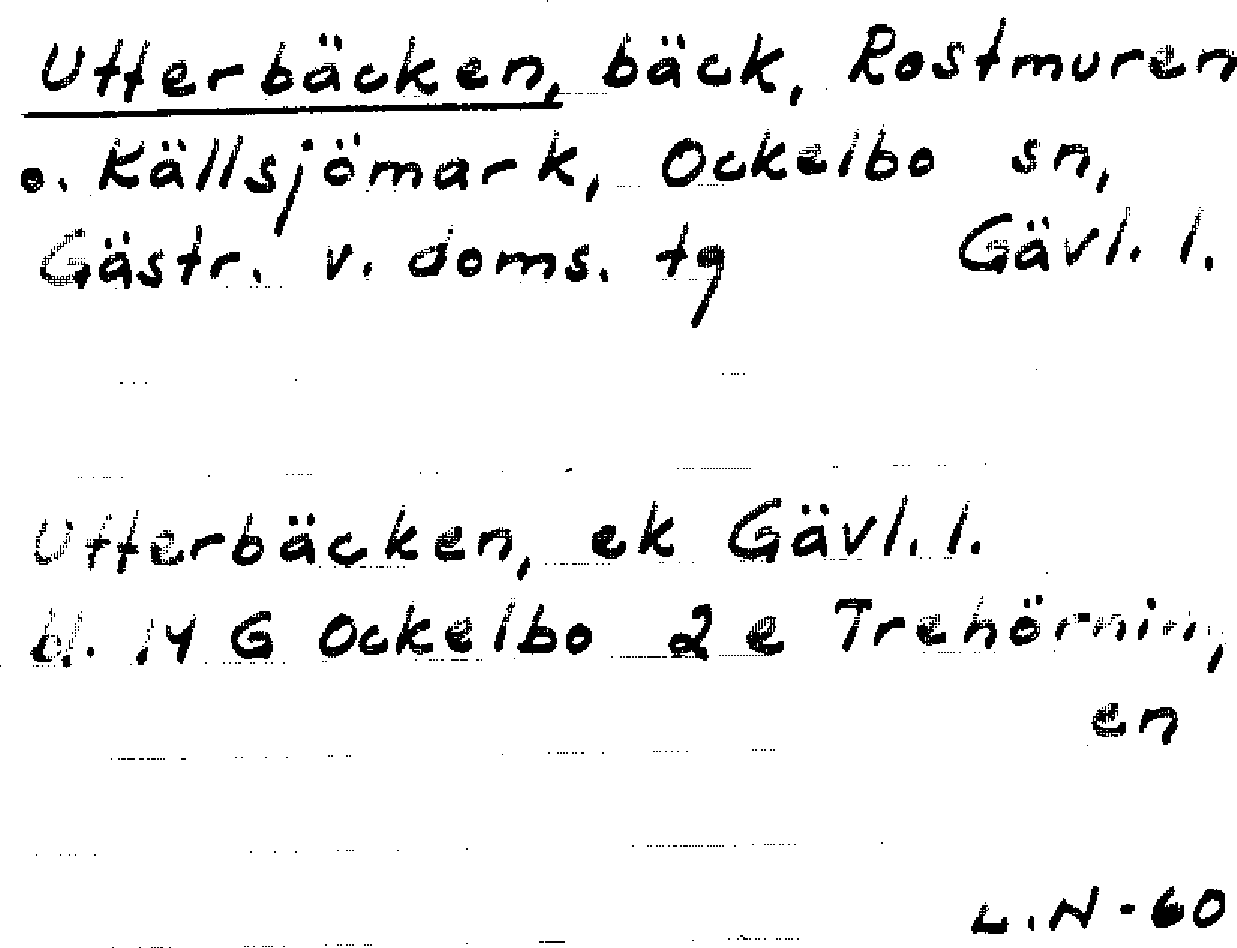 Utterbäcken, bäck, Rostmuren
o. Källsjömark, Ockelbo sn,
Gästr. v. doms. tg Gävl. l.
Utterbäcken, ek Gävl. l.
bl. 14 G Ockelbo 2 e Trehörning,
en
L.N-60